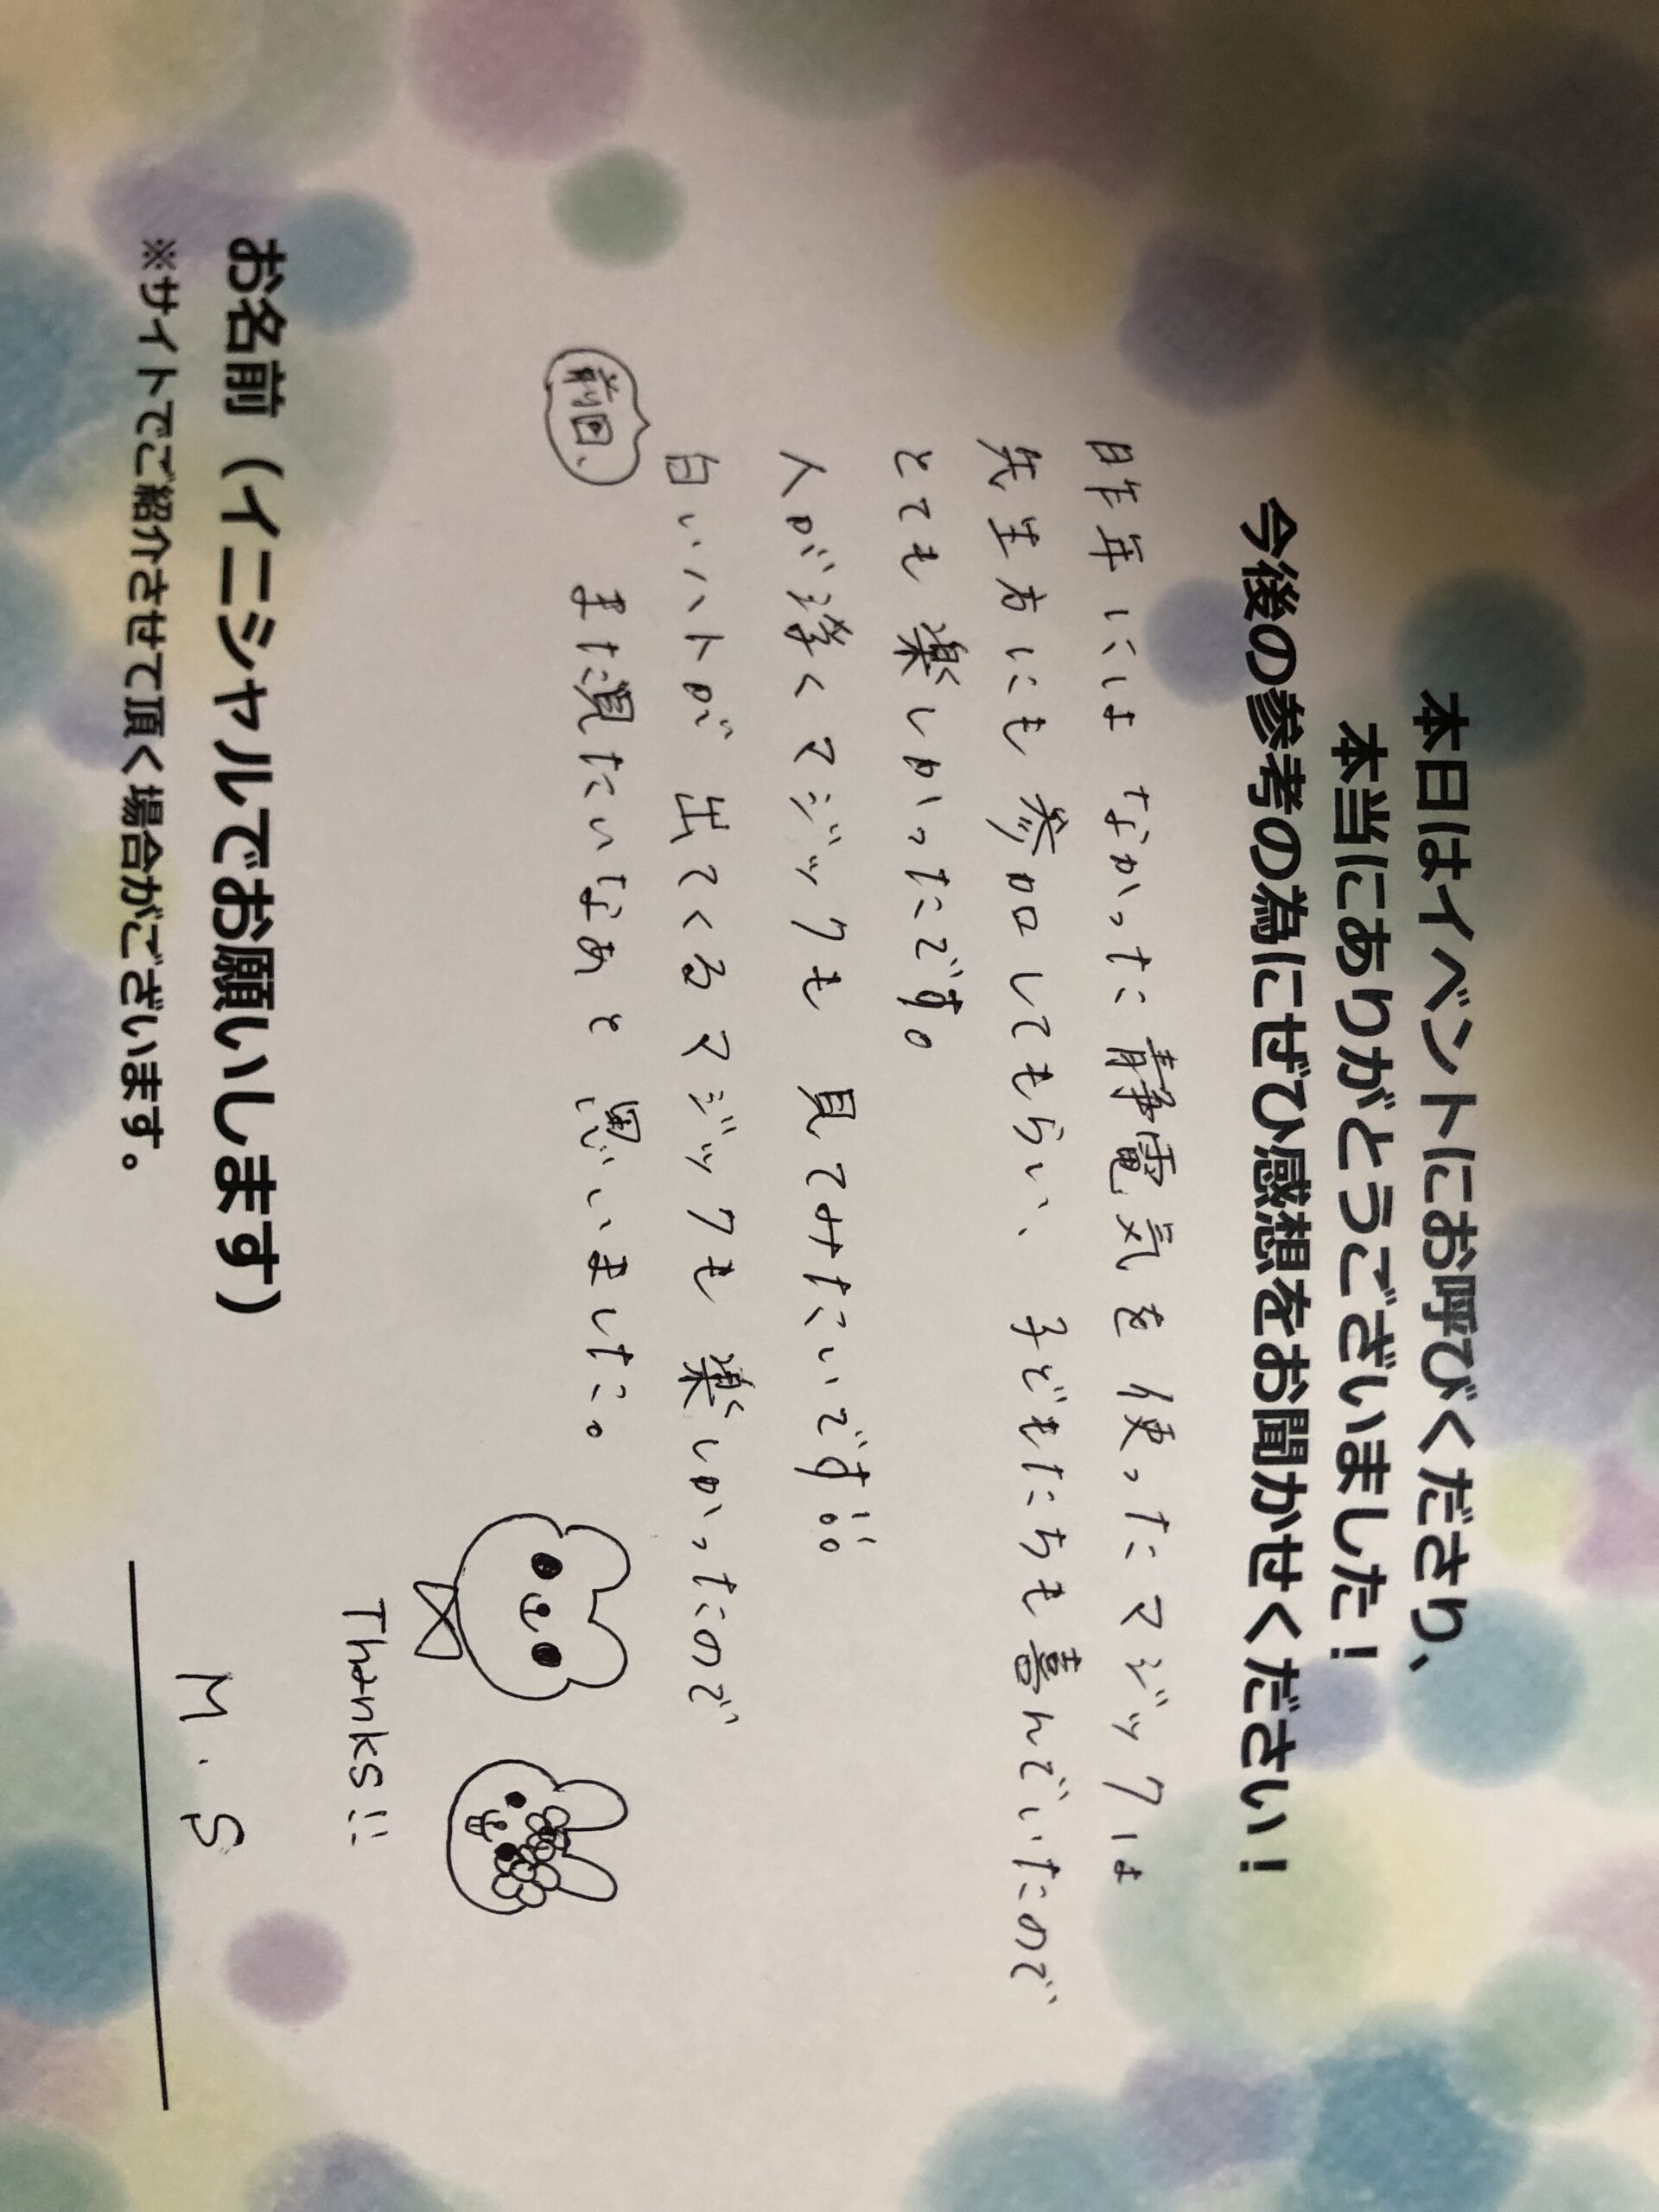 本日はイベントにお呼びくださり、
本当にありがとうございました！
今後の参考の為にぜひ感想をお聞かせください！
昨年にはなかった静電気を使ったマジックは
先生方にも参加してもらい、子どもたちも喜んでいたので
とても楽しかったです。
人が浮くマジックも見てみたいです!!
前回、
白いハトが出てくるマジックも楽しかったので
また見たいなぁと思いました。
Thanks!!
お名前（イニシャルでお願いします）
M.S
※サイトでご紹介させて頂く場合がございます。